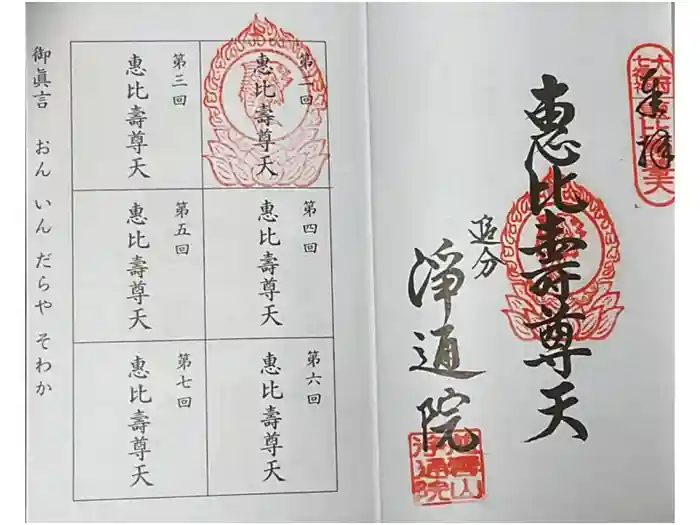 奉拝
恵比壽尊天
追分
淨通院
第二回
惠比壽尊天
第三回
惠比壽尊天
第四回
惠比壽尊天
第五回
惠比壽尊天
第六回
惠比壽尊天
第七回
惠比壽尊天
御眞言 おん いん だらや そわか